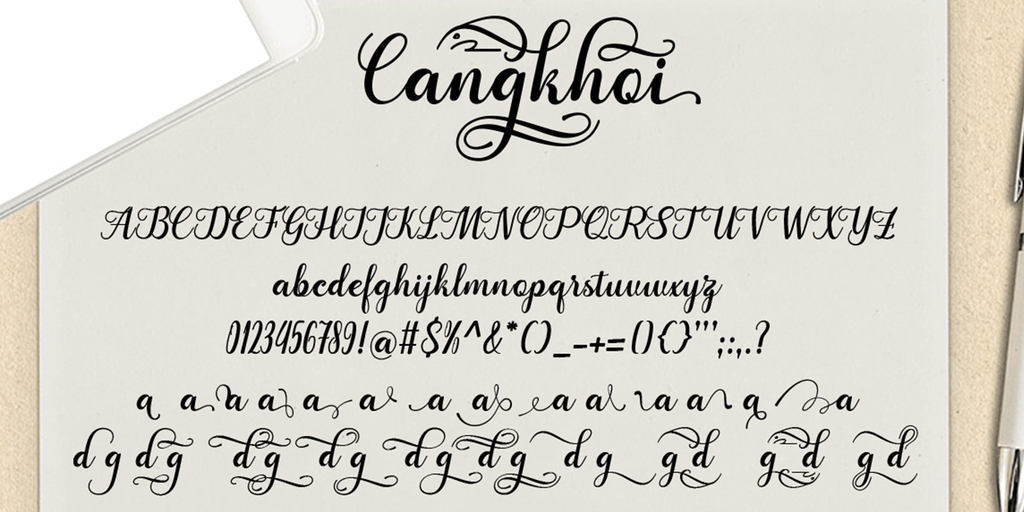 Cangkhoi
ABCDEFGHIJKLMNOPQRSTUVWXYZ
abcdefghijklmnopqrstuvwxyz
0123456789!@#$%^&*()_-+=(){}"';:,.?
a a a a a a a a a a a a a a
d g d g d g d g d g d g d g g d g d g d